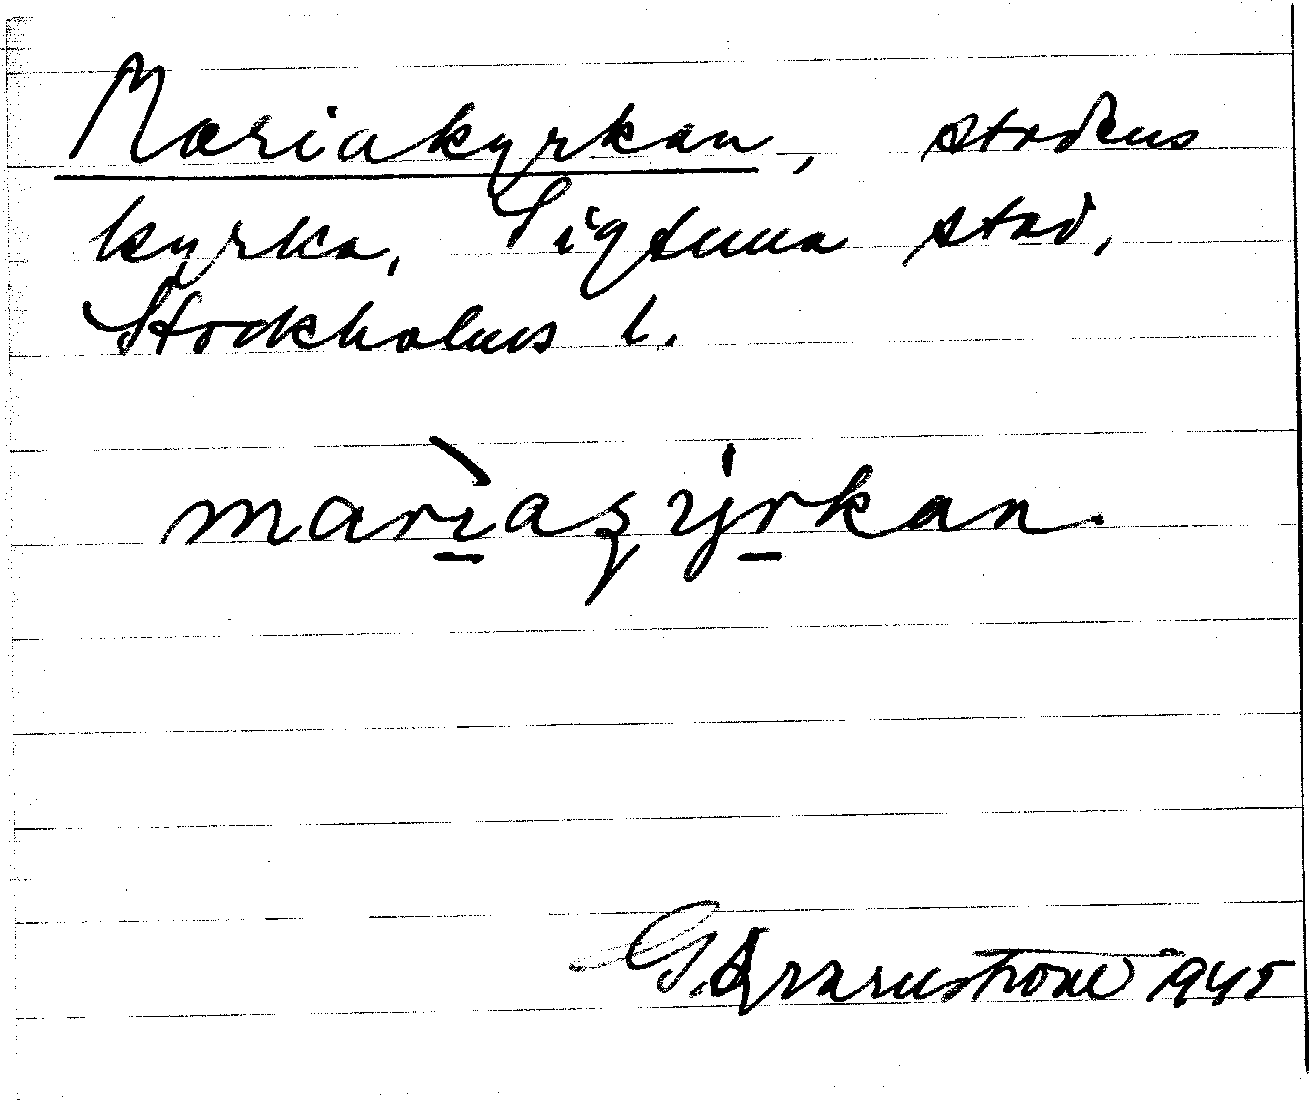 Mariakyrkan, stadens
kyrka, Sigtuna stad,
Stockholms l.
marìaȿy̍rkan.
G. Qvarnström 1945